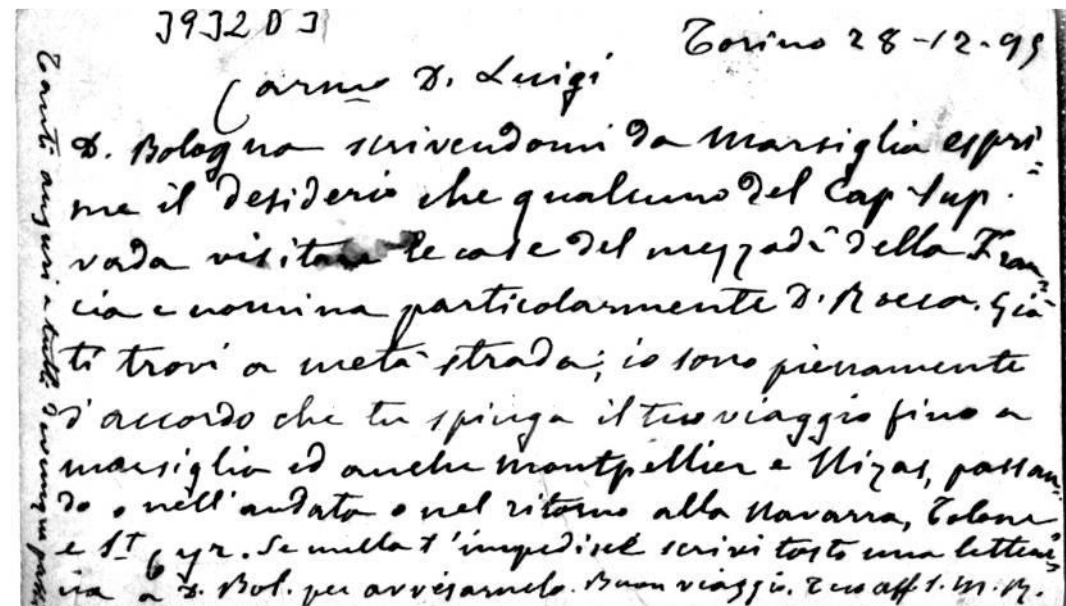 3932D3
Torino 28-12-99
Carmo D. Luigi
D. Bologna scrivendomi da Marsiglia espri=
me il desiderio che qualcuno del Cap Sup.
vada visitare le case del mezzadì della Fran=
cia e nomina particolarmente D. Rocca. Già
ti trovi a metà strada; io sono pienamente
d'accordo che tu spinga il tuo viaggio fino a
Marsiglia ed anche Montpellier e Nizas, passan=
do o nell'andata o nel ritorno alla Navarra, Tolone
e St Cyr. Se nulla t'impedisce scrivi tosto una letteri=
na a D. Bol. per avvisarnelo. Buon viaggio. Tuo aff. S. M. R.
Tanti auguri a tutti dovunque passi